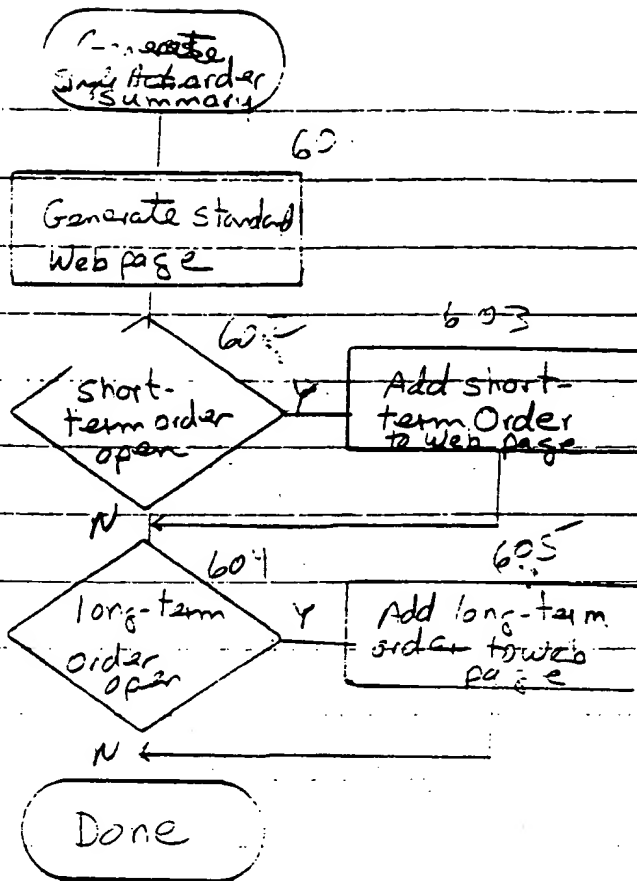 Generate
Single Action order
Summary
60
Generate standard
Web page
short-
term order
open
Y
603
Add short-
term Order
to Web page
N
604
long-term
order
open
Y
605
Add long-term
order to web
page
N
Done